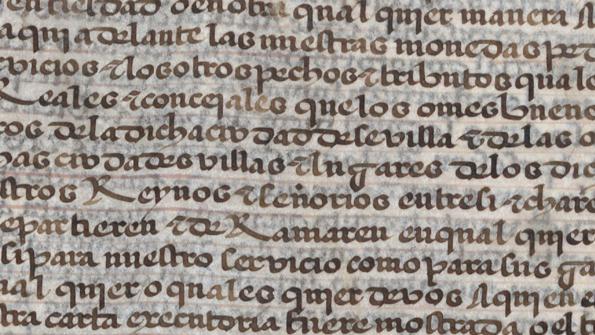 en cieldad o en otra qual quier manera A
aqui adelante las nuestras monedas ped
rvicios τ los otros pechos τ tributos quale
Reales τ concejales que los omes bueno
ros dela dicha ciudad de sevilla τ de las o
ras ciudades villas τ lugares delos dic
stros Reynos τ señorios entre si τ chare
epartieren τ de Ramaren en qual quier
si para nuestro servicio como para sus ga
ual quier o quales quier de vos A quien e
tra carta executoria fuere mostrada el t